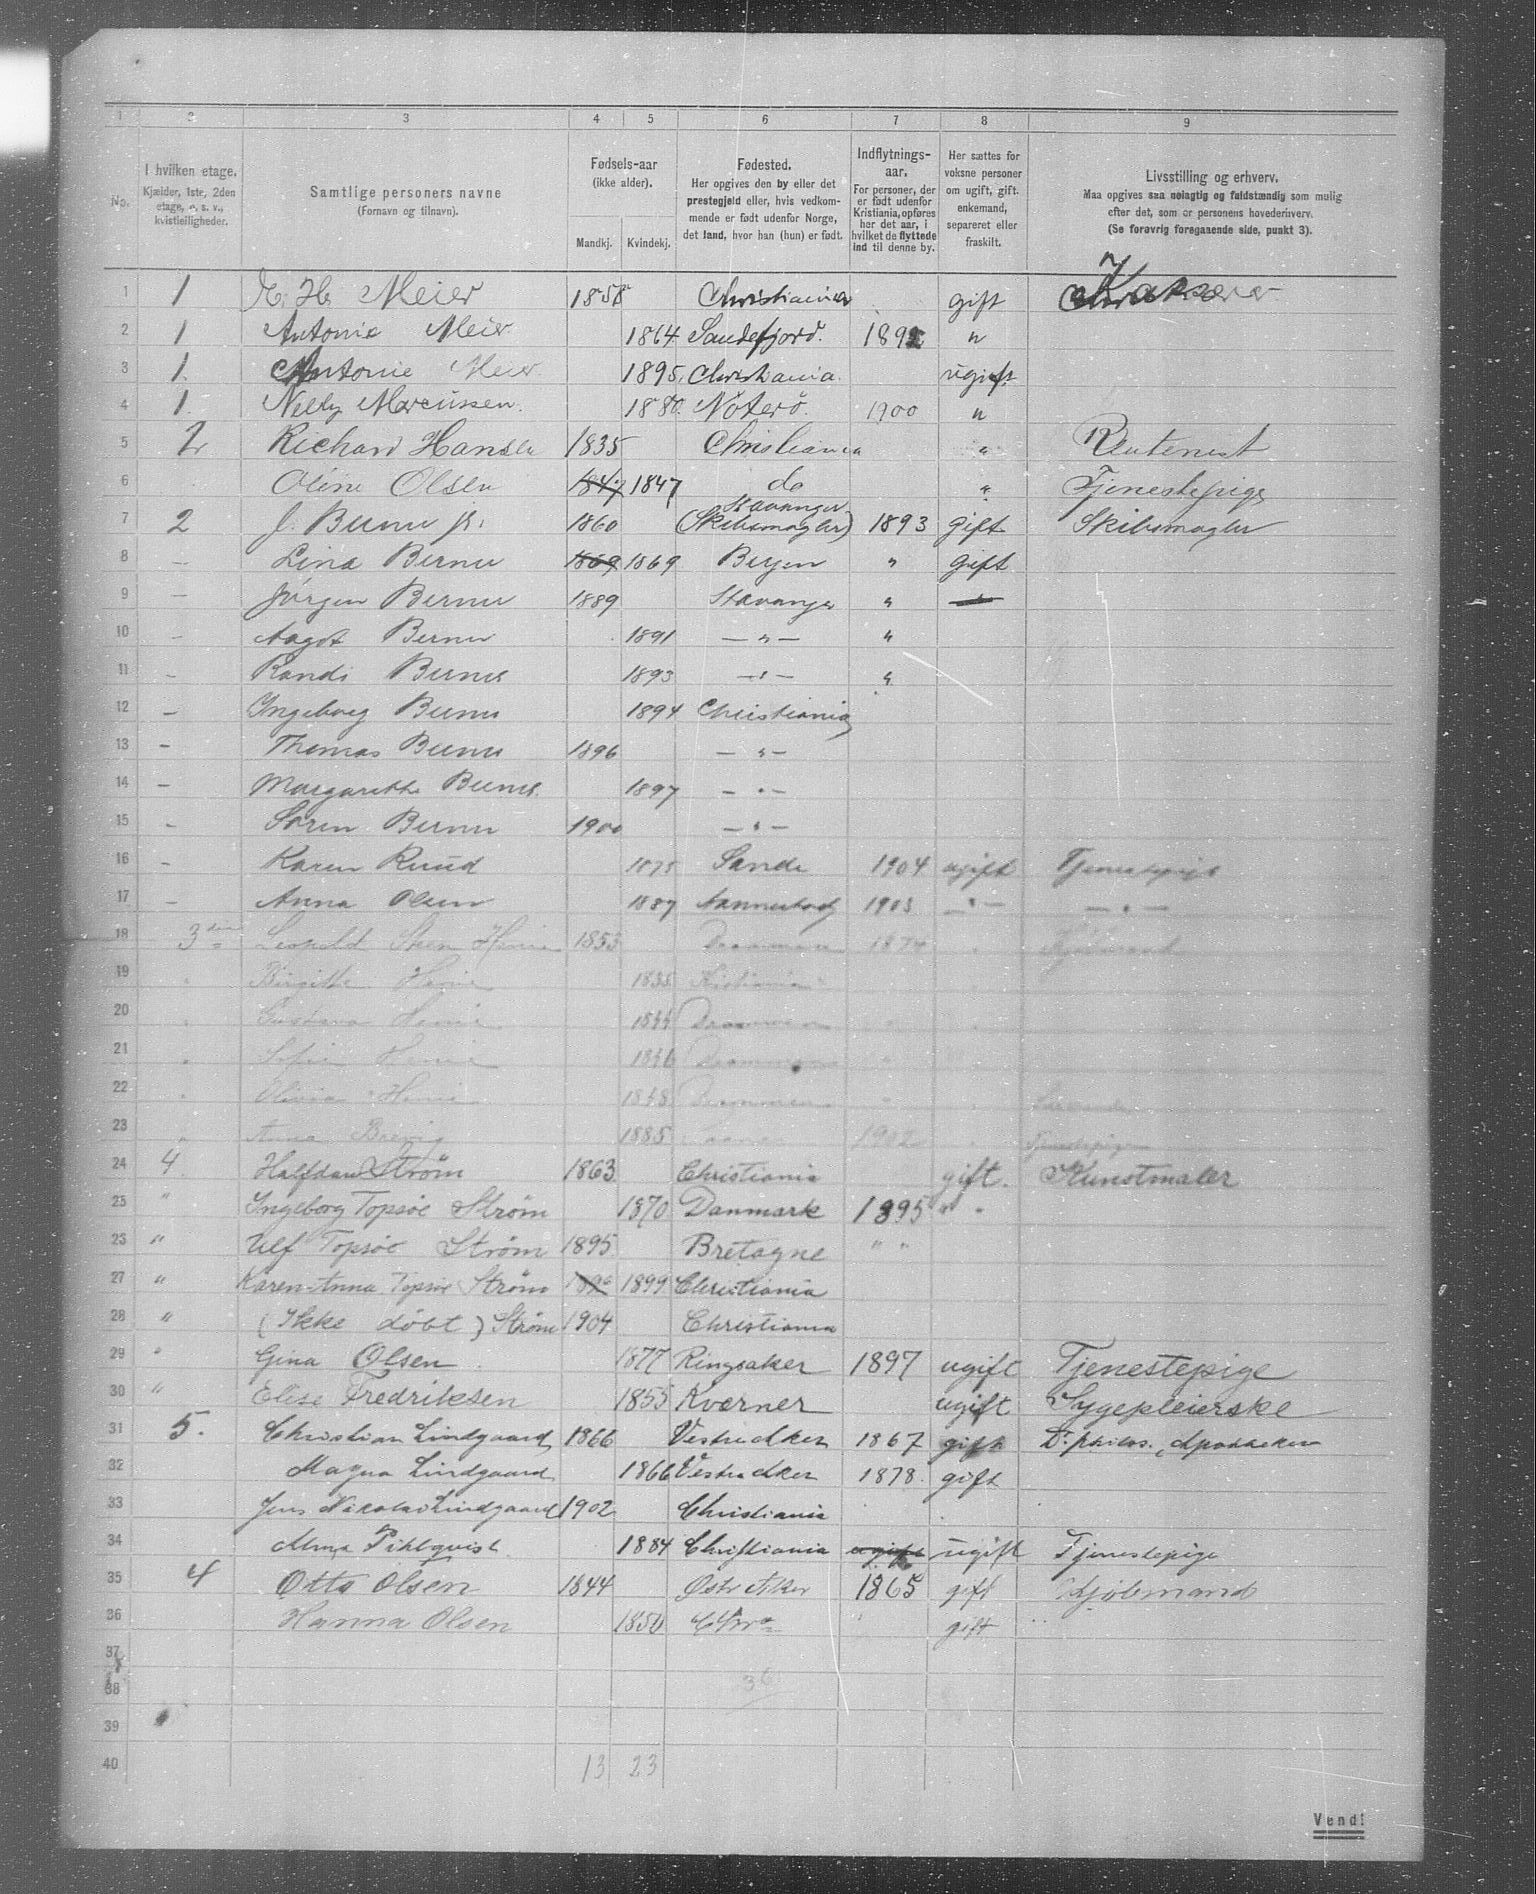 1 2 3 4 5 6 7 8 9
No.
I hvilken etage.
Kjælder, 1ste, 2den etage, o. s. v., kvistleiligheder.
Samtlige personers navne
(Fornavn og tilnavn).
Fødsels-aar
(ikke alder).
Mandkj. Kvindekj.
Fødested.
Her opgives den by eller det prestegjeld eller, hvis vedkommende er født udenfor Norge, det land, hvor han (hun) er født.
Indflytnings-aar.
For personer, der er født udenfor Kristiania, opføres her det aar, i hvilket de flyttede ind til denne by.
Her sættes for voksne personer om ugift, gift, enkemand, separeret eller fraskilt.
Livsstilling og erhverv.
Maa opgives saa nøiagtig og fuldstændig som mulig efter det, som er personens hovederhverv.
(Se forøvrig foregaaende side, punkt 3).
1 1 H. Meier Christiania gift
2 1 Antonie Meier 1864 Sandefjord. "
3 1. Antonie Meier 1895. Christiania. ugift
4 1. Nelly Marcussen. 1880. Nöterö. 1900 "
5 2 Richard Hansen 1835 Christiania " Rentenist
6 Oline Olsen 1847 1847 do " Tjenestepige
7 2 J. Berner jr. 1860 Stavanger (Skibsmægler) 1893 gift Skibsmægler
8 — Lina Berner 1869 1869 Bergen " gift
9 — Jörgen Berner 1889 Stavanger "
10 — Aagot Berner 1891 — " — "
11 — Randi Berner 1893 — " — "
12 — Ingeborg Berner 1894 Christiania
13 — Thomas Berner 1896 — " —
14 — Margarethe Berner 1897 — " —
15 — Søren Berner 1900 — " —
16 — Karen Ruud 1875 Sande 1904 ugift Tjenestepige
17 — Anna Olsen 1887 1903 — " — — " —
18 3den Leopold Steen Henie 1853 Drammen 1874 "
19 " Birgitte Henie 1835 Kristiania "
20 " Gustava Henie 1844 Drammen "
21 " Sofie Henie 1846 Drammen "
22 " Olivia Henie 1848 Drammen "
23 " Anna 1885 1902 Tjenestepige
24 4. Halfdan Strøm 1863 Christiania gift. Kunstmaler
25 " Ingeborg Topsöe Strøm 1870 Danmark 1895 " "
23 " Ulf Topsöe Strøm 1895 Bretagne " "
27 " Karen-Anna Topsöe Strøm 1899 Christiania
28 " (Ikke døbt) Strøm 1904 Christiania
29 " Gina Olsen 1877 Ringsaker 1897 ugift Tjenestepige
30 " Elise Fredriksen 1855 Kværner ugift Sygepleierske
31 5. Christian Lindgaard 1866 Vestre Aker 1867 gift Dr. philos., Apotheker
32 Magna Lindgaard 1866 Vestre Aker 1878. gift
33 Jens Nikolai Lindgaard 1902 Christiania
34 Alma Pihlqvist 1884 Christiania ugift ugift Tjenestepige
35 4 Otto Olsen 1844 Østre Aker 1865 gift Kjöbmand
36 Hanna Olsen 1850 Chra " gift
37
38 36
39
40 13 23
Vend!